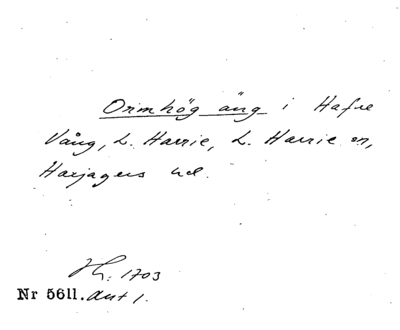 Ormhög äng i Hafre
Vång, L. Harrie, L. Harrie sn,
Harjagers hd.
1703
Nr 5611. Avt 1.